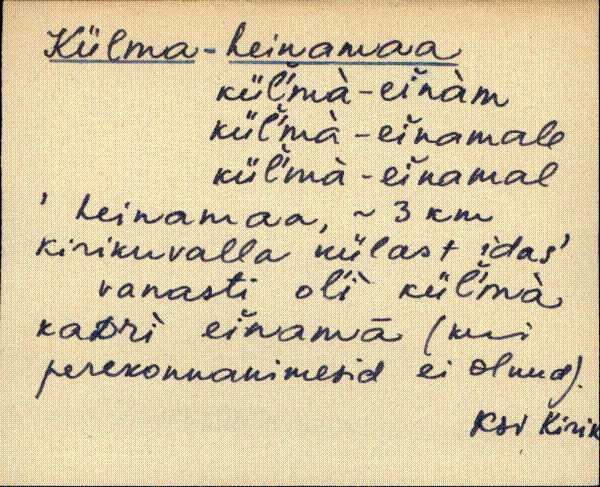 Külma-heinamaa
kül̆'mà-eĭnàm
kül̆'mà-eĭnamale
kül̆'mà-eĭnamal
' heinamaa, ~ 3 km
kirikuvalla külast idas'
vanasti ol'ì kül̆'mà
kadrì eĭnamā (kui
perekonnanimesid ei olnud).
Ksi Kirik